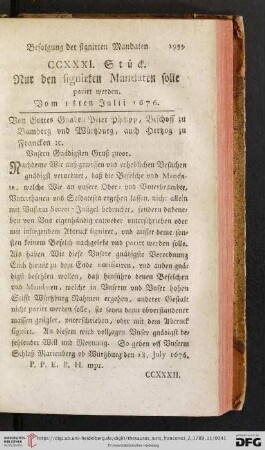 Befolgung der signirten Mandaten 1933
CCXXXI. Stück.
Nur den signirten Mandaten solle
parirt werden.
Vom 18ten Julii 1676.
Von Gottes Gnaden Peter Philipp, Bischoff zu
Bamberg und Würtzburg, auch Hertzog zu
Francken ꝛc.
Unsern Gnädigsten Gruß zuvor.
Nachdeme Wir auß gewissen und erheblichen Ursachen
gnädigst verordnet, daß die Befelche und Manda-
ta, welche Wir an unsere Ober- und Unterbeambte,
Unterthanen und Soldatesca ergehen lassen, nicht allein
mit Unserm Secret-Insigel bedrucket, sondern dabene-
ben von Uns eigenhändig entweder unterschrieben oder
mit infolgendem Abtruck signiret, und ausser deme son-
sten keinem Befelch nachgelebt und parirt werden solle.
Als haben Wir diese Unsere gnädigste Verordnung
Euch hiemit zu dem Ende notificiren, und anbey gnä-
digst befehlen wollen, daß hinführo denen Befelchen
und Mandaten, welche in Unserem und Unser hohen
Stifft Würtzburg Nahmen ergehen, anderer Gestalt
nicht parirt werden solle, sie seyen dann obverstandener
massen gesiglet, unterschrieben, oder mit dem Abtruck
signirt. An diesem wird vollzogen Unser gnädigst be-
fehlender Will und Meynung. So geben uff Unserem
Schloß Marienberg ob Würtzburg den 18. July 1676.
P. P. E. B. H. mpr.
CCXXXII.
https://digi.ub.uni-heidelberg.de/diglit/thesaurus_juris_franconici_2_1789_11/0041
© Universitätsbibliothek Heidelberg
gefördert durch die
DFG